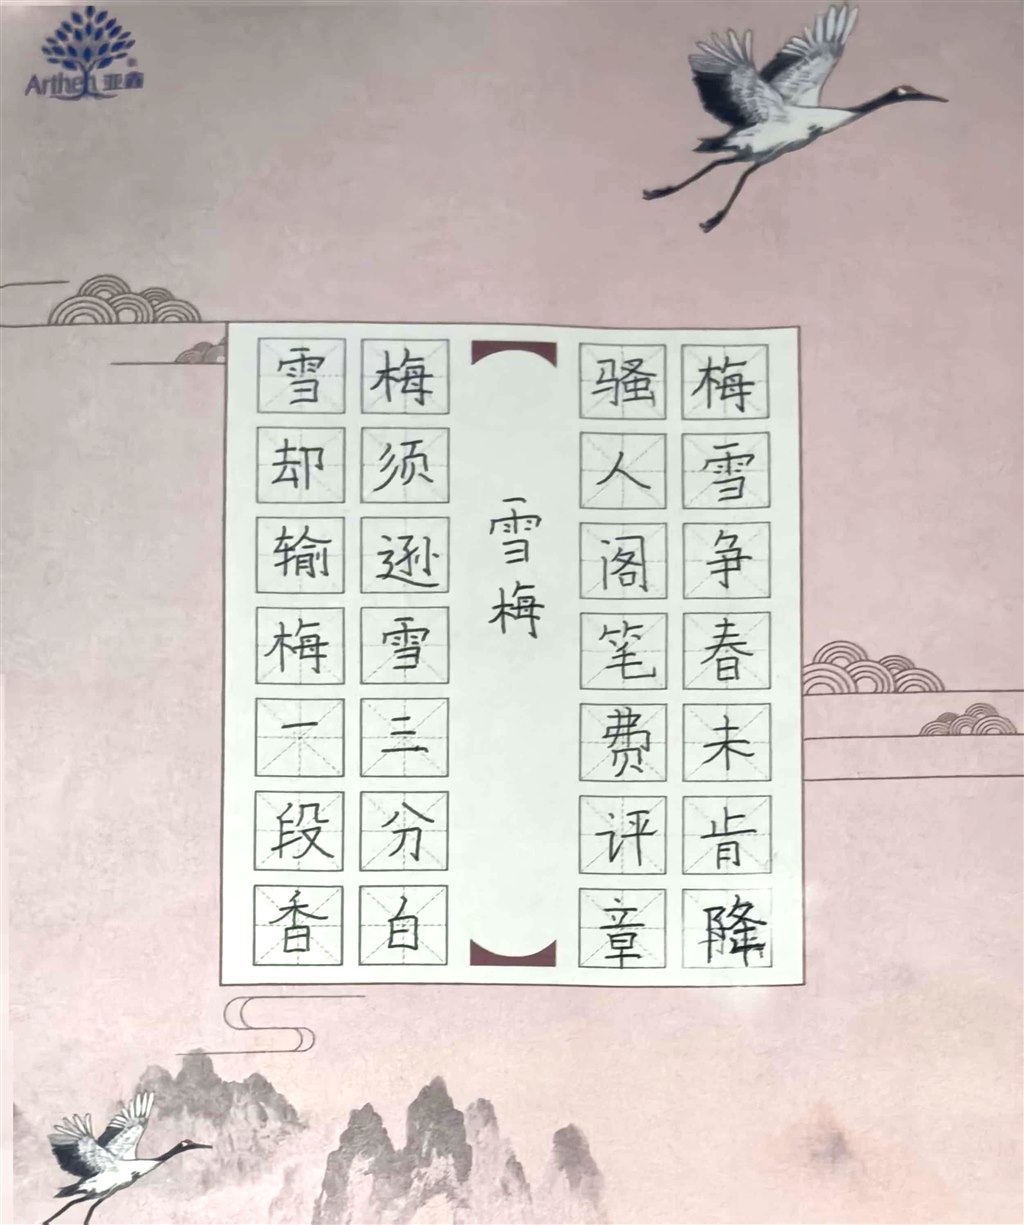 Arthen 亚鑫
梅雪争春未肯隆
骚人阁笔费评章
雪梅
梅须逊雪三分白
雪却输梅一段香